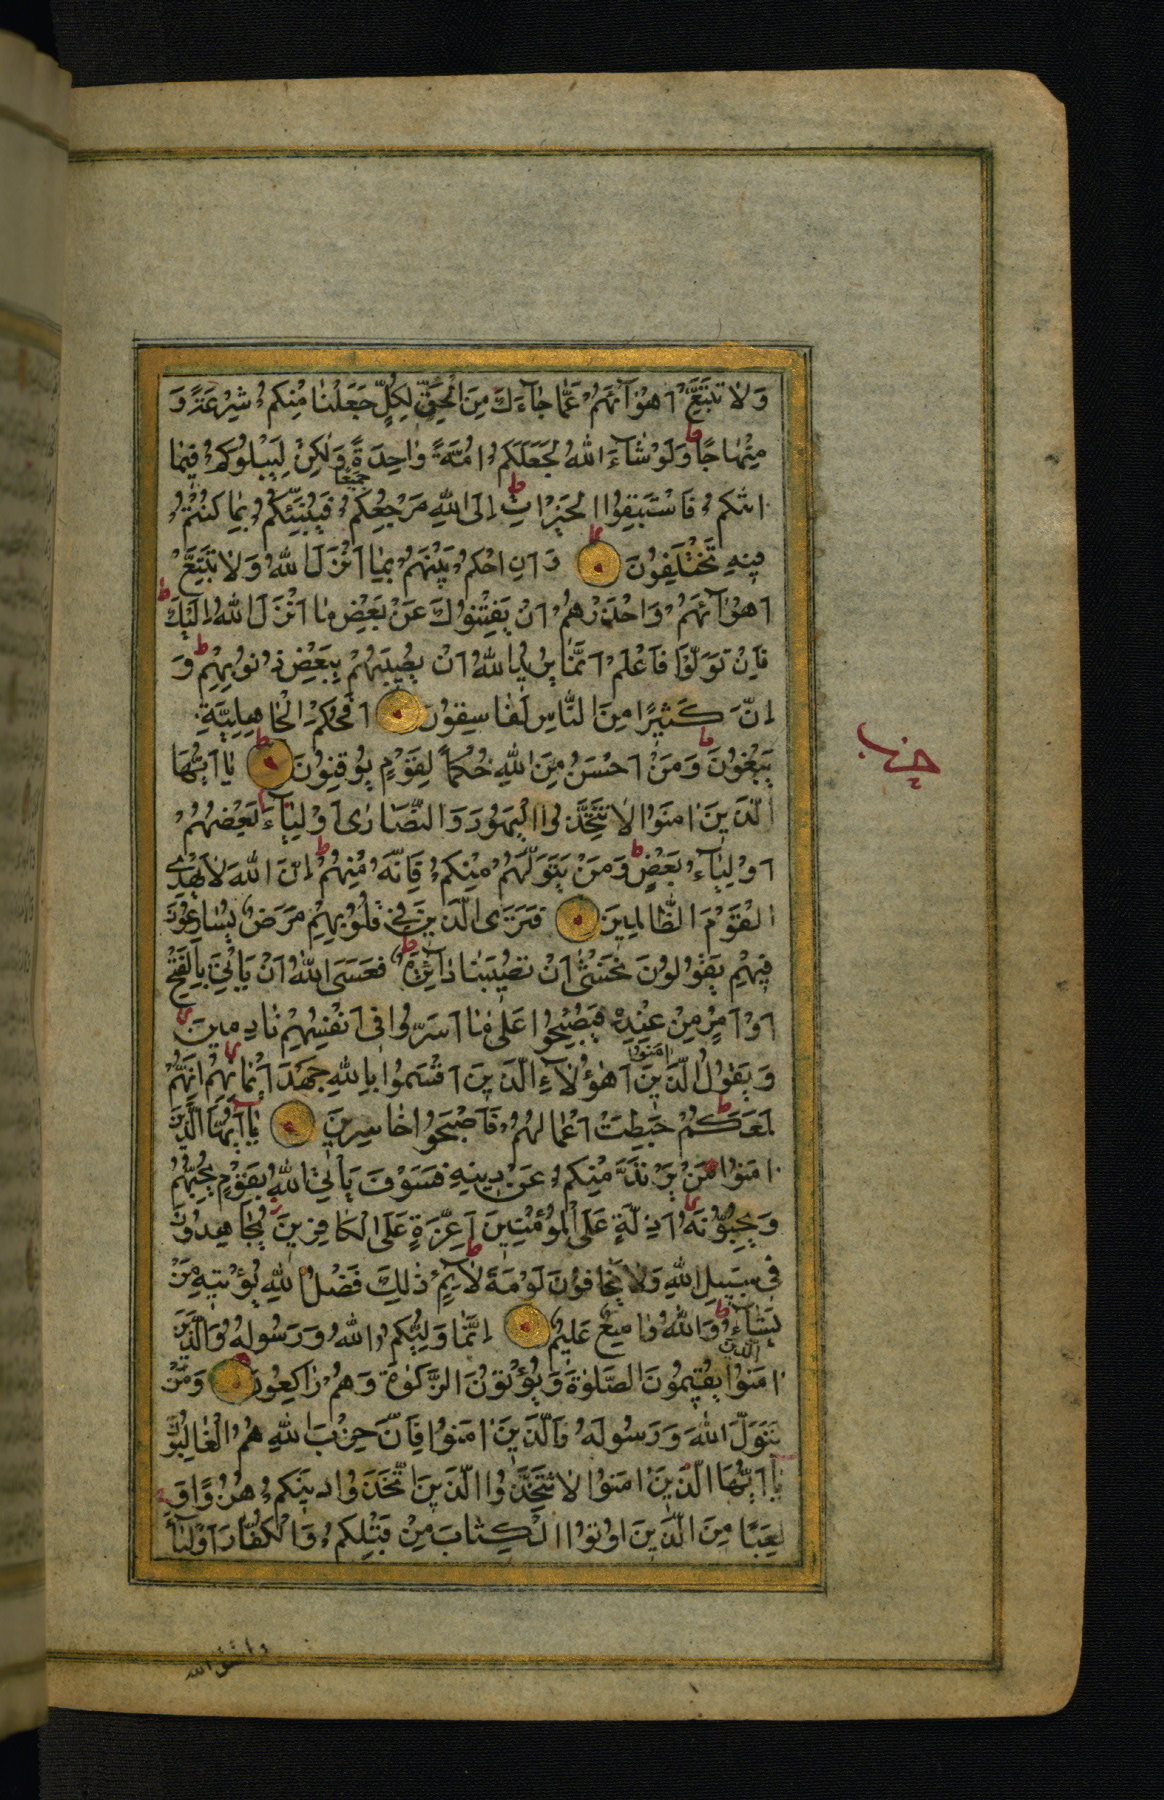 وَلَا تَتَّبِعْ اَهْوَآئَهُمْ عَمَّا جَآءَكَ مِنَ الْحَقِّ لِكُلٍّ جَعَلْنَا مِنْكُمْ شِرْعَةً وَ
مِنْهَاجًا ط وَلَوْ شَآءَ اللهُ لَجَعَلَكُمْ اُمَّةً وَاحِدَةً وَلٰكِنْ لِيَبْلُوَكُمْ فِيمَا
اٰتٰكُمْ فَاسْتَبِقُوا الْخَيْرَاتِ ط اِلَى اللهِ مَرْجِعُكُمْ جَمِيعًا فَيُنَبِّئُكُمْ بِمَا كُنْتُمْ
فِيهِ تَخْتَلِفُونَ وَاَنِ احْكُمْ بَيْنَهُمْ بِمَا اَنْزَلَ اللهُ وَلَا تَتَّبِعْ
اَهْوَآئَهُمْ وَاحْذَرْهُمْ اَنْ يَفْتِنُوكَ عَنْ بَعْضِ مَا اَنْزَلَ اللهُ اِلَيْكَ ط
فَاِنْ تَوَلَّوْا فَاعْلَمْ اَنَّمَا يُرِيدُ اللهُ اَنْ يُصِيبَهُمْ بِبَعْضِ ذُنُوبِهِمْ ط وَ
اِنَّ كَثِيرًا مِنَ النَّاسِ لَفَاسِقُونَ اَفَحُكْمَ الْجَاهِلِيَّةِ
يَبْغُونَ ط وَمَنْ اَحْسَنُ مِنَ اللهِ حُكْمًا لِقَوْمٍ يُوقِنُونَ يَا اَيُّهَا
الَّذِينَ اٰمَنُوا لَا تَتَّخِذُوا الْيَهُودَ وَالنَّصَارٰى اَوْلِيَآءَ بَعْضُهُمْ
اَوْلِيَآءُ بَعْضٍ ط وَمَنْ يَتَوَلَّهُمْ مِنْكُمْ فَاِنَّهُ مِنْهُمْ ط اِنَّ اللهَ لَا يَهْدِي
الْقَوْمَ الظَّالِمِينَ فَتَرَى الَّذِينَ فِي قُلُوبِهِمْ مَرَضٌ يُسَارِعُونَ
فِيهِمْ يَقُولُونَ نَخْشٰى اَنْ تُصِيبَنَا دَآئِرَةٌ ط فَعَسَى اللهُ اَنْ يَأْتِيَ بِالْفَتْحِ
اَوْ اَمْرٍ مِنْ عِنْدِهِ فَيُصْبِحُوا عَلٰى مَا اَسَرُّوا فِي اَنْفُسِهِمْ نَادِمِينَ
وَيَقُولُ الَّذِينَ اٰمَنُوا اَهٰؤُلَآءِ الَّذِينَ اَقْسَمُوا بِاللهِ جَهْدَ اَيْمَانِهِمْ اِنَّهُمْ
لَمَعَكُمْ ط حَبِطَتْ اَعْمَالُهُمْ فَاَصْبَحُوا خَاسِرِينَ يَا اَيُّهَا الَّذِينَ
اٰمَنُوا مَنْ يَرْتَدَّ مِنْكُمْ عَنْ دِينِهِ فَسَوْفَ يَأْتِي اللهُ بِقَوْمٍ يُحِبُّهُمْ
وَيُحِبُّونَهُ اَذِلَّةٍ عَلَى الْمُؤْمِنِينَ اَعِزَّةٍ عَلَى الْكَافِرِينَ يُجَاهِدُونَ
فِي سَبِيلِ اللهِ وَلَا يَخَافُونَ لَوْمَةَ لَآئِمٍ ط ذٰلِكَ فَضْلُ اللهِ يُؤْتِيهِ مَنْ
يَشَآءُ ط وَاللهُ وَاسِعٌ عَلِيمٌ اِنَّمَا وَلِيُّكُمُ اللهُ وَرَسُولُهُ وَالَّذِينَ
اٰمَنُوا الَّذِينَ يُقِيمُونَ الصَّلٰوةَ وَيُؤْتُونَ الزَّكٰوةَ وَهُمْ رَاكِعُونَ وَمَنْ
يَتَوَلَّ اللهَ وَرَسُولَهُ وَالَّذِينَ اٰمَنُوا فَاِنَّ حِزْبَ اللهِ هُمُ الْغَالِبُونَ
يَا اَيُّهَا الَّذِينَ اٰمَنُوا لَا تَتَّخِذُوا الَّذِينَ اتَّخَذُوا دِينَكُمْ هُزُوًا وَ
لَعِبًا مِنَ الَّذِينَ اُوتُوا الْكِتَابَ مِنْ قَبْلِكُمْ وَالْكُفَّارَ اَوْلِيَآءَ
حزب
واتقوا الله